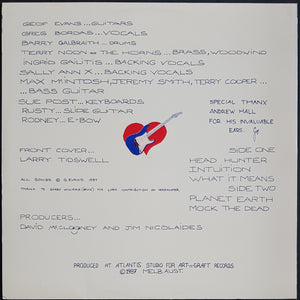 GEOF EVANS...GUITARS
GREG BORDAS...VOCALS
BARRY GALBRAITH...DRUMS
TERRY NOON & THE HORNS...BRASS, WOODWIND
INGRID GAILITIS...BACKING VOCALS
SALLY ANN X...BACKING VOCALS
MAX McINTOSH, JEREMY SMITH, TERRY COOPER...
...BASS GUITAR
SUE POST...KEYBOARDS
RUSTY...SLIDE GUITAR
RODNEY...E-BOW
SPECIAL THANX
ANDREW HALL
FOR HIS INVALUABLE
EARS.
FRONT COVER...
LARRY TIDSWELL
ALL SONGS © G.EVANS 1987
PRODUCERS...
DAVID McCLOONEY AND JIM NICOLAIDES
SIDE ONE
HEAD HUNTER
INTUITION
WHAT IT MEANS
SIDE TWO
PLANET EARTH
MOCK THE DEAD
PRODUCED AT ATLANTIS STUDIO FOR ART-GRAFT RECORDS
©1987 MELB.AUST.